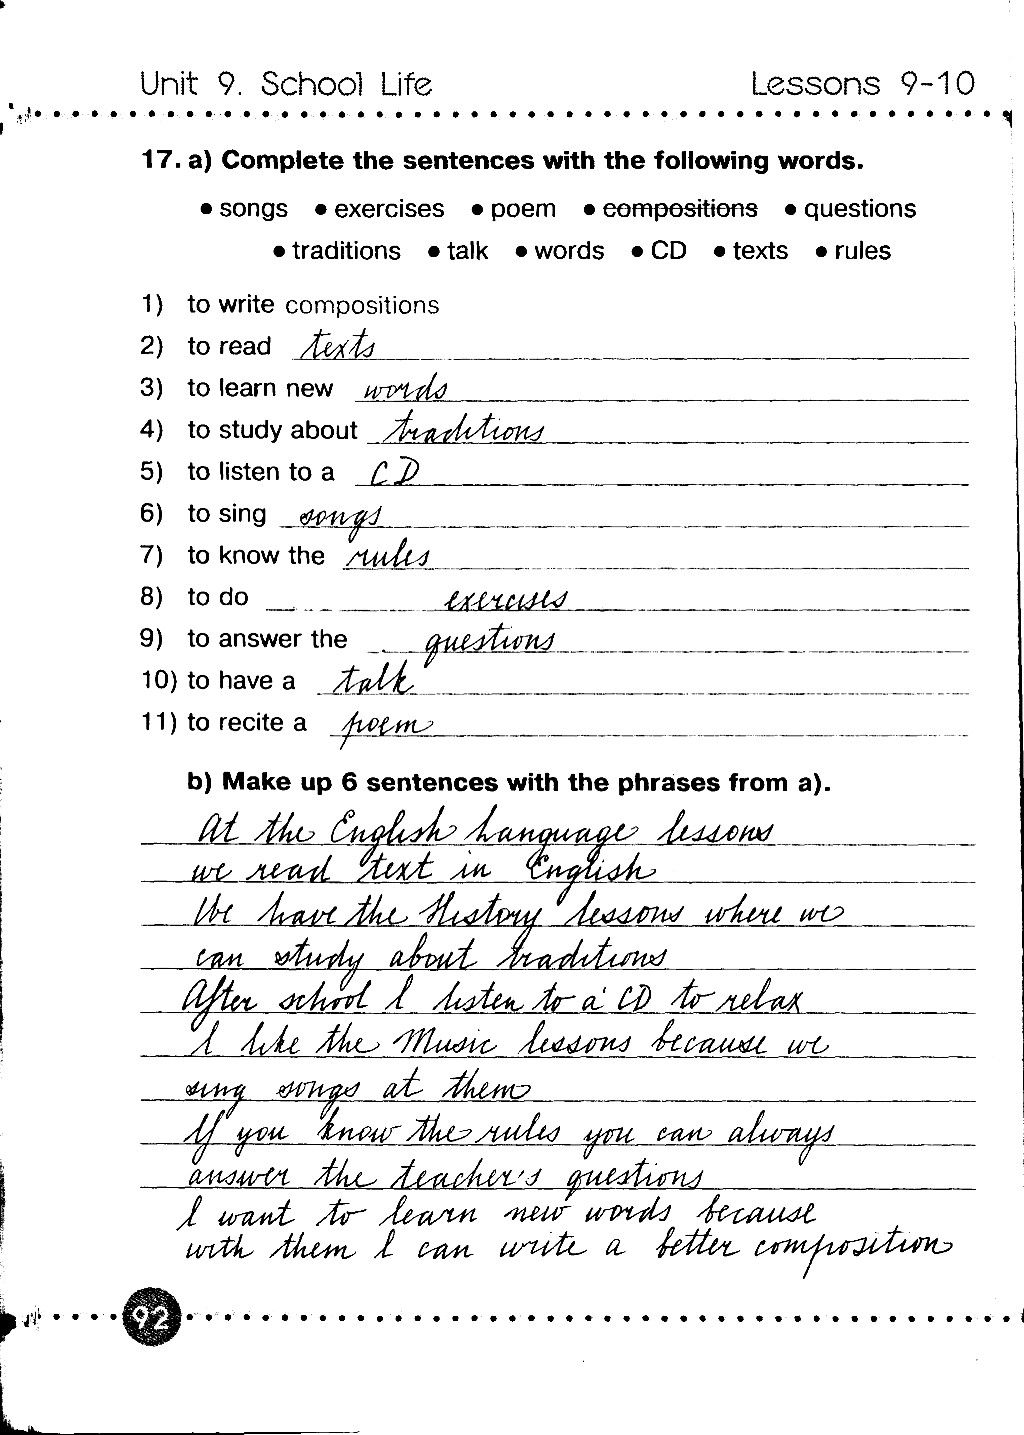 Unit 9. School Life Lessons 9-10
17. a) Complete the sentences with the following words.
• songs • exercises • poem • compositions • questions
• traditions • talk • words • CD • texts • rules
1) to write compositions
2) to read texts
3) to learn new words
4) to study about traditions
5) to listen to a CD
6) to sing songs
7) to know the rules
8) to do exercises
9) to answer the questions
10) to have a talk
11) to recite a poem
b) Make up 6 sentences with the phrases from a).
At the English Language lessons
we read text in English
We have the History lessons where we
can study about traditions
After school I listen to a CD to relax
I like the Music lessons because we
sing songs at them
If you know the rules you can always
answer the teacher's questions
I want to learn new words because
with them I can write a better composition
92